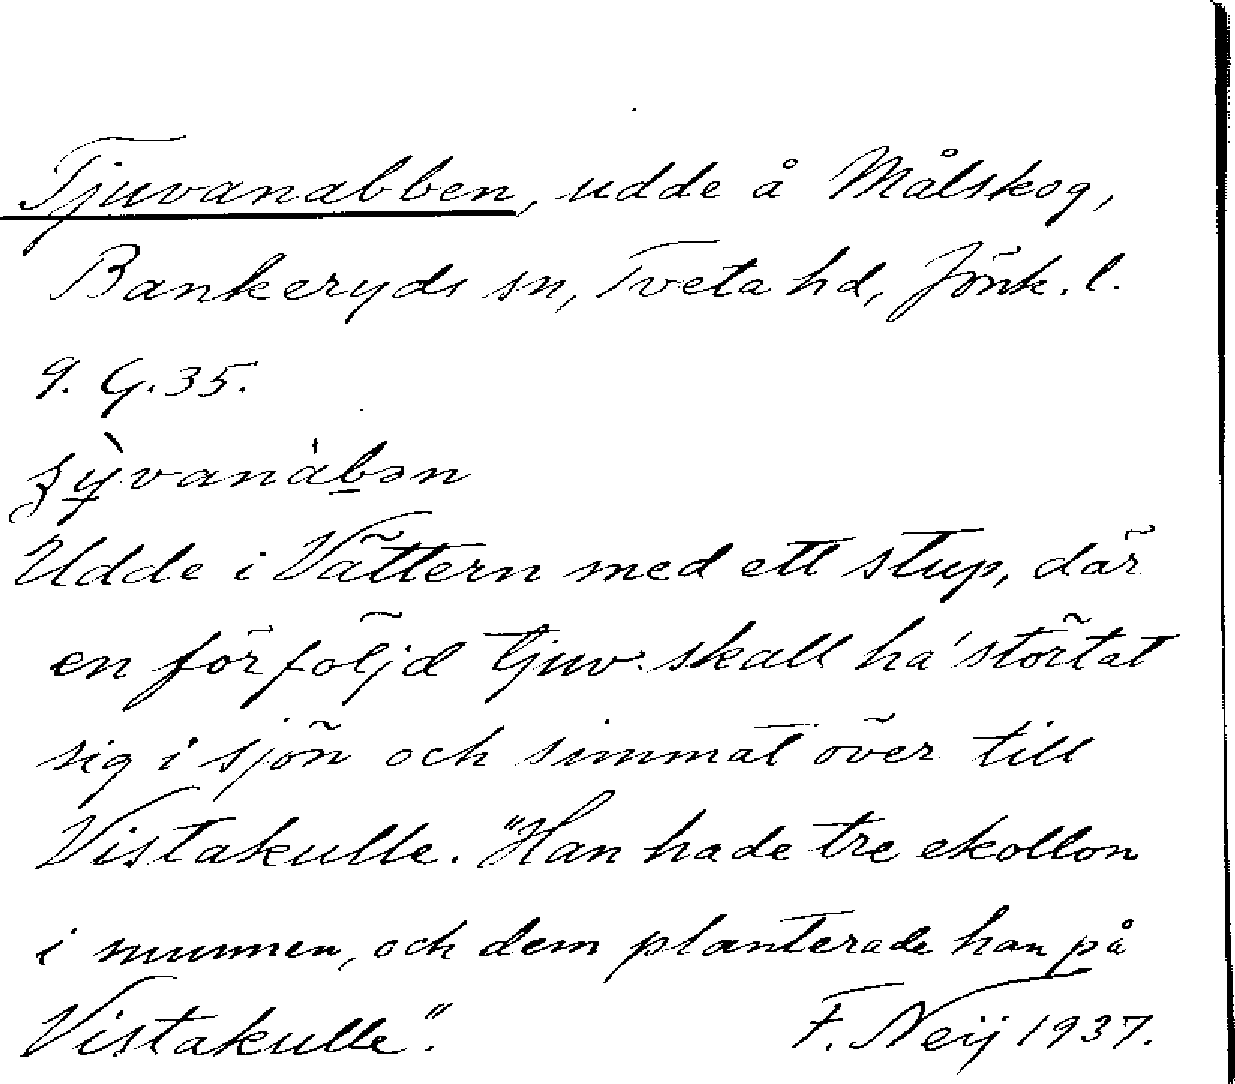 Tjuvanabben, udde å Målskog,
Bankeryds sn, Tveta hd, Jönk. l.
9. G. 35.
Udde i Vättern med ett stup, där
en förföljd tjuv skall ha' störtat
sig i sjön och simmat över till
Vistakulle. "Han hade tre ekollon
i munnen, och dem planterade han på
Vistakulle".
F. Neij 1937.